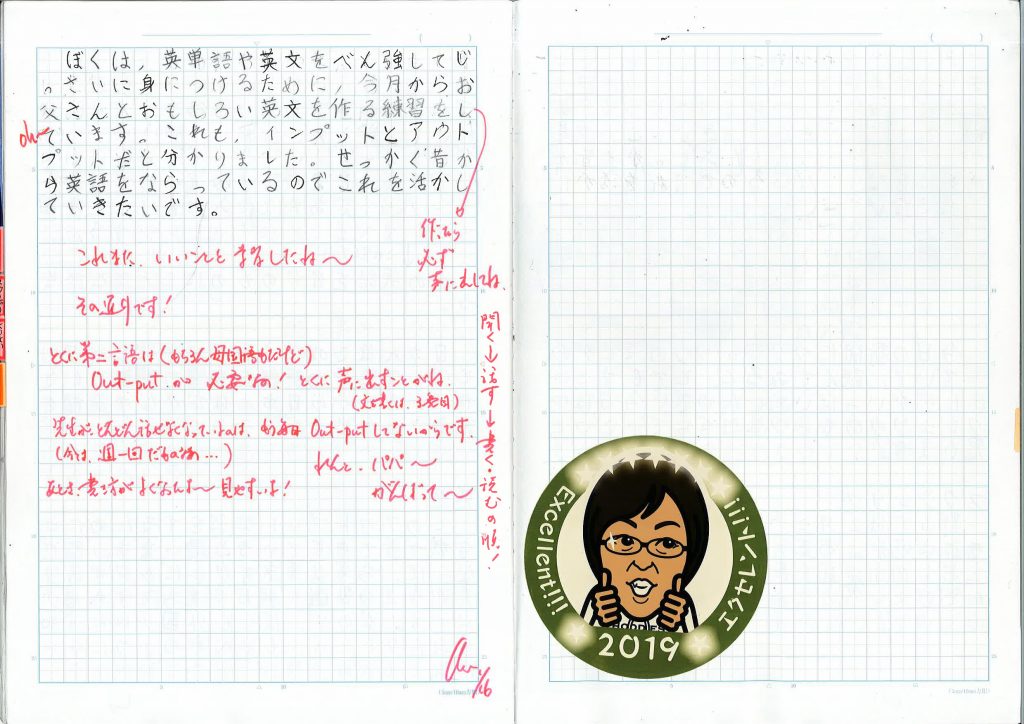 ぼくは，英単語や英文をべん強してじ
っさいに身につけるために，今月からお
父さんとおもしろい英文を作る練習をし
ています。これも，インプットとアウト
プットだと分かりました。せっかく昔か
ら英語をならっているのでこれを活かし
ていきたいです。
作ったら
必ず
声に出してね。
これまた、いいことを学習したね〜
その通りです！
とくに第二言語は(もちろん母国語もだけど)
Out-putが必要なの！とくに声に出すことがね。
(文を書くは、3番目)
先生がどんどん話せなくなっているのは、毎日Out-putしてないからです。
(今は、週一回だものなぁ…)
パパ〜
がんばって〜
見やすいよ！
聞く→話す→書く・読むの順！
1/16
Excellent!!!
エクセレント!!!
2019
(1cm/10mm方眼)
(1cm/10mm方眼)